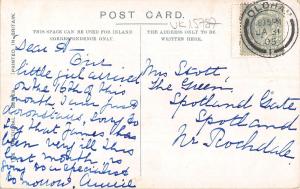 POST CARD.
THIS SPACE CAN BE USED FOR INLAND
CORRESPONDENCE ONLY.
THE ADDRESS TO BE
WRITTEN HERE.
PRINTED IN BRITAIN.
Dear A. Our
little girl arrived
on the 16th of this
month I am just
Sorry to
say that James has
been very ill this
last month is
going to a specialist
tomorrow, Annie
Mrs Stott
The Green,
Spotland Gate
Spotland
Nr Rochdale
OLDHAM